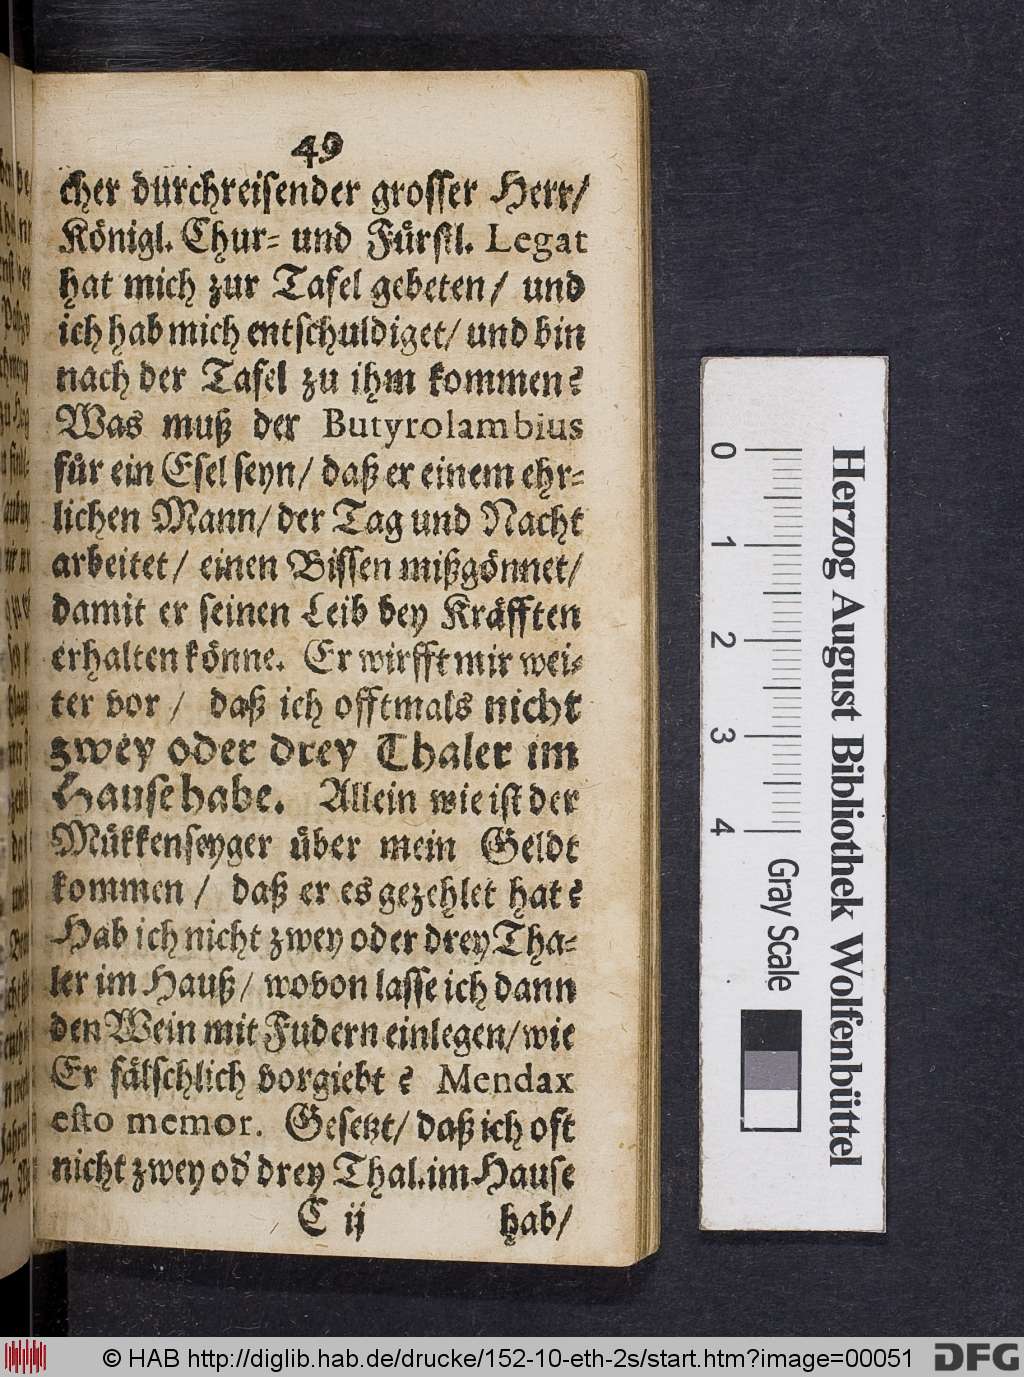 49
cher durchreisender grosser Herr/
Königl. Chur- und Fürstl. Legat
hat mich zur Tafel gebeten/ und
ich hab mich entschuldiget/ und bin
nach der Tafel zu ihm kommen?
Was muß der Butyrolambius
für ein Esel seyn/ daß er einem ehr-
lichen Mann/ der Tag und Nacht
arbeitet/ einen Bissen mißgönnet/
damit er seinen Leib bey Kräfften
erhalten könne. Er wirfft mir wei-
ter vor/ daß ich offtmals nicht
zwey oder drey Thaler im
Hause habe. Allein wie ist der
Mükkenseyger über mein Geldt
kommen/ daß er es gezehlet hat?
Hab ich nicht zwey oder drey Tha-
ler im Hauß/ wovon lasse ich dann
den Wein mit Fudern einlegen/ wie
Er fälschlich vorgiebt? Mendax
esto memor. Gesetzt/ daß ich oft
nicht zwey od' drey Thal. im Hause
C ij hab/
Herzog August Bibliothek Wolfenbüttel
0 1 2 3 4 Gray Scale
© HAB http://diglib.hab.de/drucke/152-10-eth-2s/start.htm?image=00051 DFG